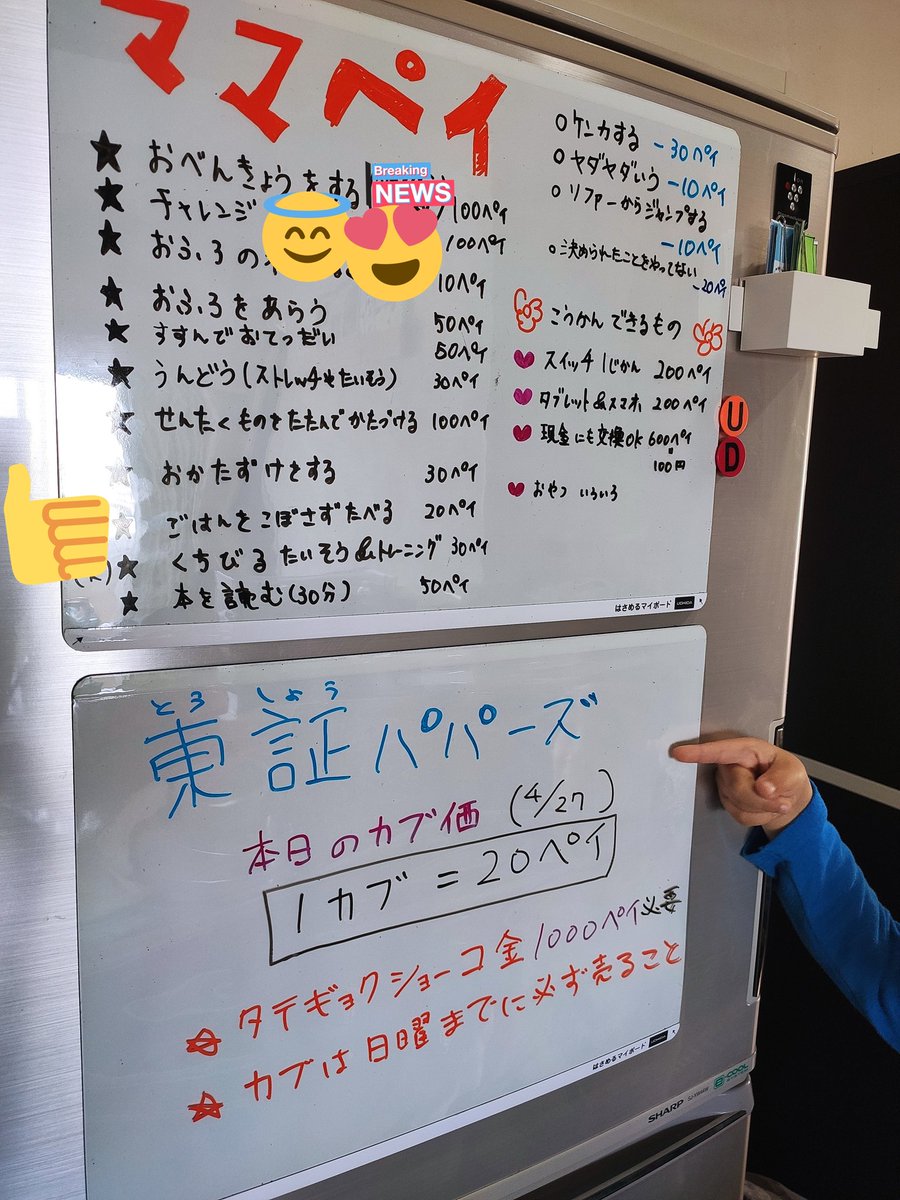 ママペイ
★ おべんきょうをする 100ペイ
★ チャレンジ 100ペイ
★ おふろの 10ペイ
★ おふろをあらう 50ペイ
★ すすんでおてつだい 50ペイ
★ うんどう(ストレッチやたいそう) 30ペイ
★ せんたくものをたたんでかたづける 100ペイ
★ おかたずけをする 30ペイ
★ ごはんをこぼさずたべる 20ペイ
★ くちびるたいそう&トレーニング 30ペイ
★ 本を読む(30分) 50ペイ
○ケンカする -30ペイ
○ヤダヤダいう -10ペイ
○ソファーからジャンプする
-10ペイ
○決められたことをやってない
-20ペイ
こうかんできるもの
♥ スイッチ1じかん 200ペイ
♥ タブレット&スマホ 200ペイ
♥ 現金にも交換OK 600ペイ
=
100円
♥ おやつ いろいろ
はさめるマイボード UCHIDA
Breaking
NEWS
U
D
とうしょう
東証パパーズ
本日のカブ価 (4/27)
1カブ = 20ペイ
☆ タテギョクショーコ金1000ペイ必要
☆ カブは日曜までに必ず売ること
はさめるマイボード
SHARP
e-COOL